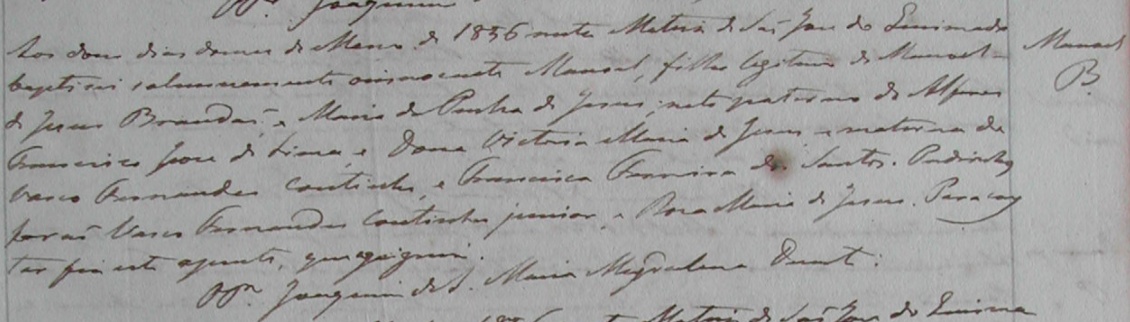 Pe. Joaquim
Aos doze dias do mes de Março de 1856 nesta Matriz de São Jose do Queimado
Manoel
baptisei solemnemente o innocente Manoel, filho legitimo de Manoel
B
de Jesus Brandão, e Maria da Penha de Jesus, neto paterno do Alferes
Francisco Jose de Lima, e Dona Victoria Maria de Jesus e materno de
Vasco Fernandes Coutinho, e Francisca Ferreira dos Santos. Padrinhos
forão Vasco Fernandes Coutinho junior, e Rosa Maria de Jesus. Para cons
tar fiz este assento, que assignei.
Joaquim de S. Maria Magdalena Duarte.
Matriz de São Jose do Queima